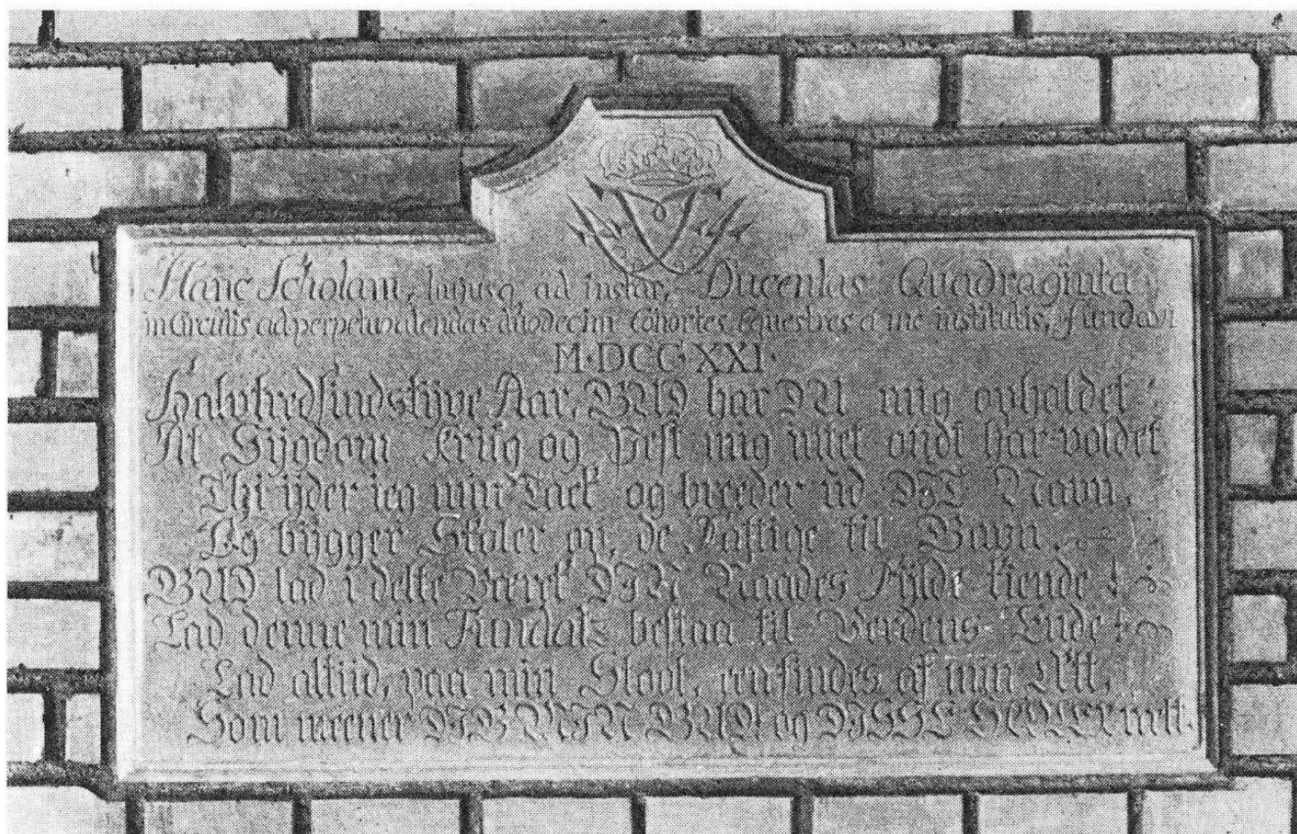 Hanc Scholam, hujusq, ad instar, Ducentas Quadraginta
in Circulis ad perpetuo alendas duodecim Cohortes Equestres a me institutis, fundavi
M·DCC·XXI·
Halvtredsindstÿve Aar, GUD har DU mig opholdet
At Sÿgdom Kriig og Pest mig intet ondt har voldet
Thi ÿder ieg min Tack og breeder ud DIT Navn,
Og bÿgger Skoler op, de Fattige til Gavn.
GUD lad i dette Værck DIN Naades Fÿlde kiende!
Lad denne min Fundatz bestaa til Verdens Ende!
Lad altiid, paa min Stool, een findes af min Æt,
Som meener DIG MIN GUD! og DISSE SKOLER rett.